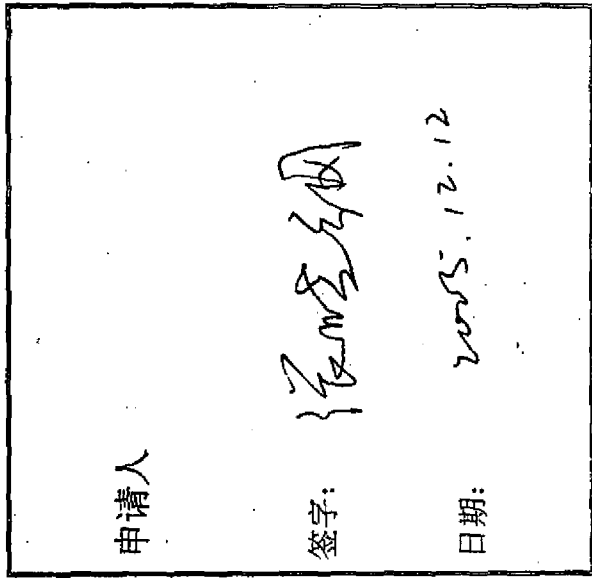 申请人
签字：
日期： 2005.12.12